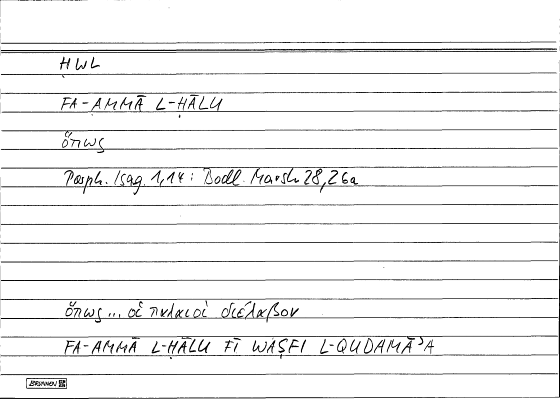 ḤWL
FA-AMMĀ L-ḤĀLU
ὅπως
Porph. Isag. 1,14: Bodl. Marsh 28, 26a
ὅπως ... οἱ παλαιοὶ διέλαβον
FA-AMMĀ L-ḤĀLU FĪ WAṢFI L-QUDAMĀʾA
BRUNNEN